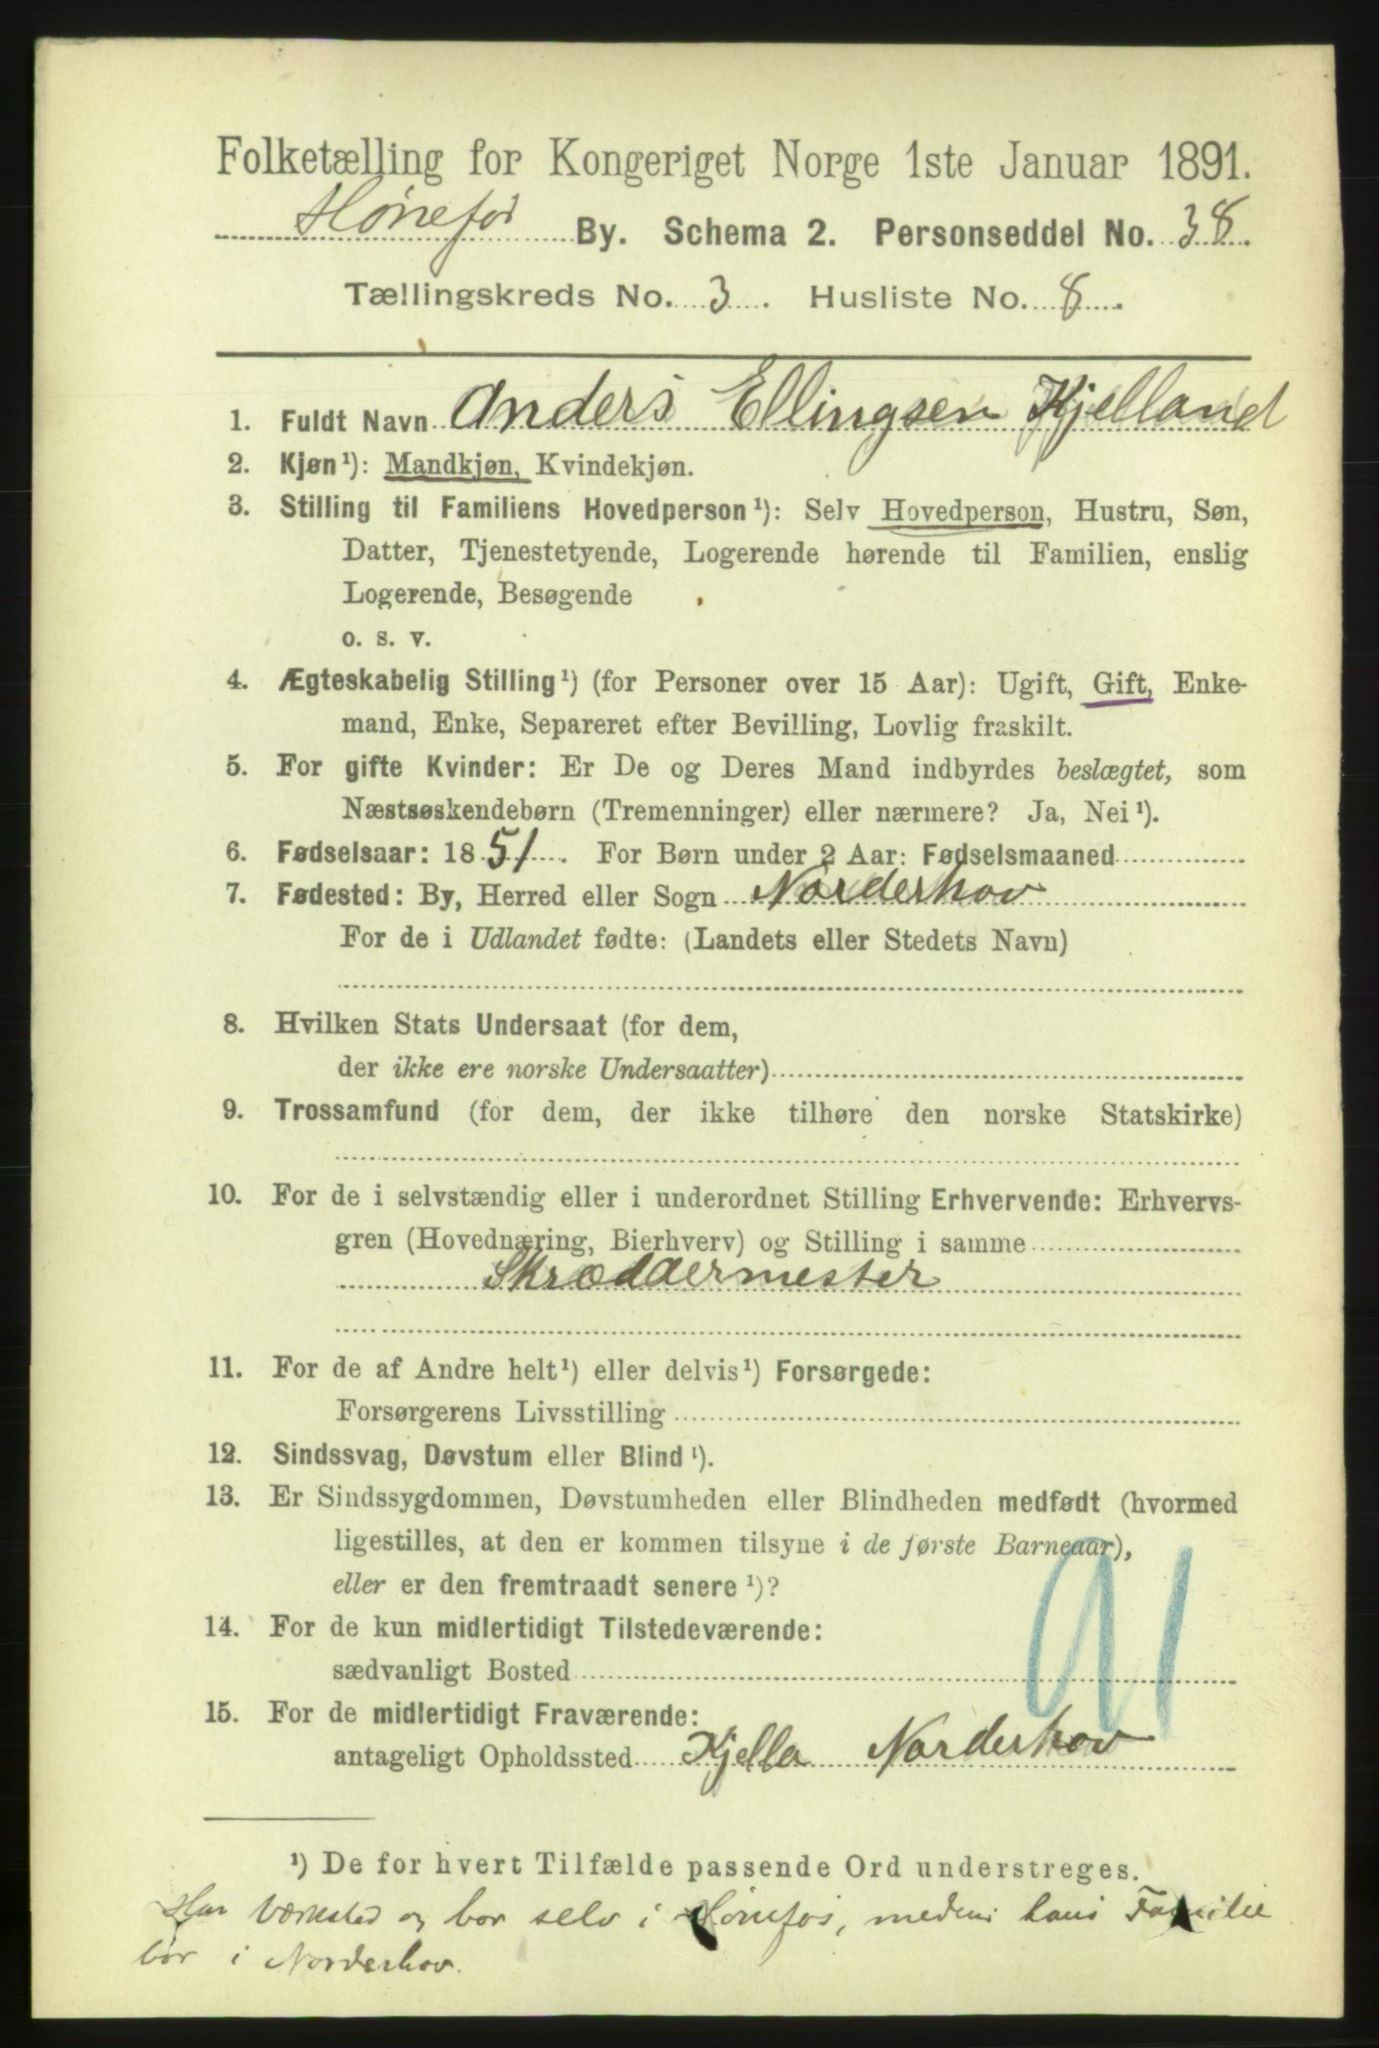 Folketælling for Kongeriget Norge 1ste Januar 1891.
Hønefos By. Schema 2. Personseddel No. 38.
Tællingskreds No. 3. Husliste No. 8.
1. Fuldt Navn Anders Ellingsen Kjelland
2. Kjøn¹): Mandkjøn, Kvindekjøn.
3. Stilling til Familiens Hovedperson¹): Selv Hovedperson, Hustru, Søn,
Datter, Tjenestetyende, Logerende hørende til Familien, enslig
Logerende, Besøgende
o. s. v.
4. Ægteskabelig Stilling¹) (for Personer over 15 Aar): Ugift, Gift, Enke-
mand, Enke, Separeret efter Bevilling, Lovlig fraskilt.
5. For gifte Kvinder: Er De og Deres Mand indbyrdes beslægtet, som
Næstsøskendebørn (Tremenninger) eller nærmere? Ja, Nei¹).
6. Fødselsaar: 1851. For Børn under 2 Aar: Fødselsmaaned
7. Fødested: By, Herred eller Sogn Norderhov
For de i Udlandet fødte: (Landets eller Stedets Navn)
8. Hvilken Stats Undersaat (for dem,
der ikke ere norske Undersaatter)
9. Trossamfund (for dem, der ikke tilhøre den norske Statskirke)
10. For de i selvstændig eller i underordnet Stilling Erhvervende: Erhvervs-
gren (Hovednæring, Bierhverv) og Stilling i samme
Skræddermester
11. For de af Andre helt¹) eller delvis¹) Forsørgede:
Forsørgerens Livsstilling
12. Sindssvag, Døvstum eller Blind¹).
13. Er Sindssygdommen, Døvstumheden eller Blindheden medfødt (hvormed
ligestilles, at den er kommen tilsyne i de første Barneaar),
eller er den fremtraadt senere¹)?
14. For de kun midlertidigt Tilstedeværende:
sædvanligt Bosted
91
15. For de midlertidigt Fraværende:
antageligt Opholdssted Kjella Norderhov
¹) De for hvert Tilfælde passende Ord understreges.
Har Værksted og bor selv i Hønefos, medens hans Familie
bor i Norderhov.